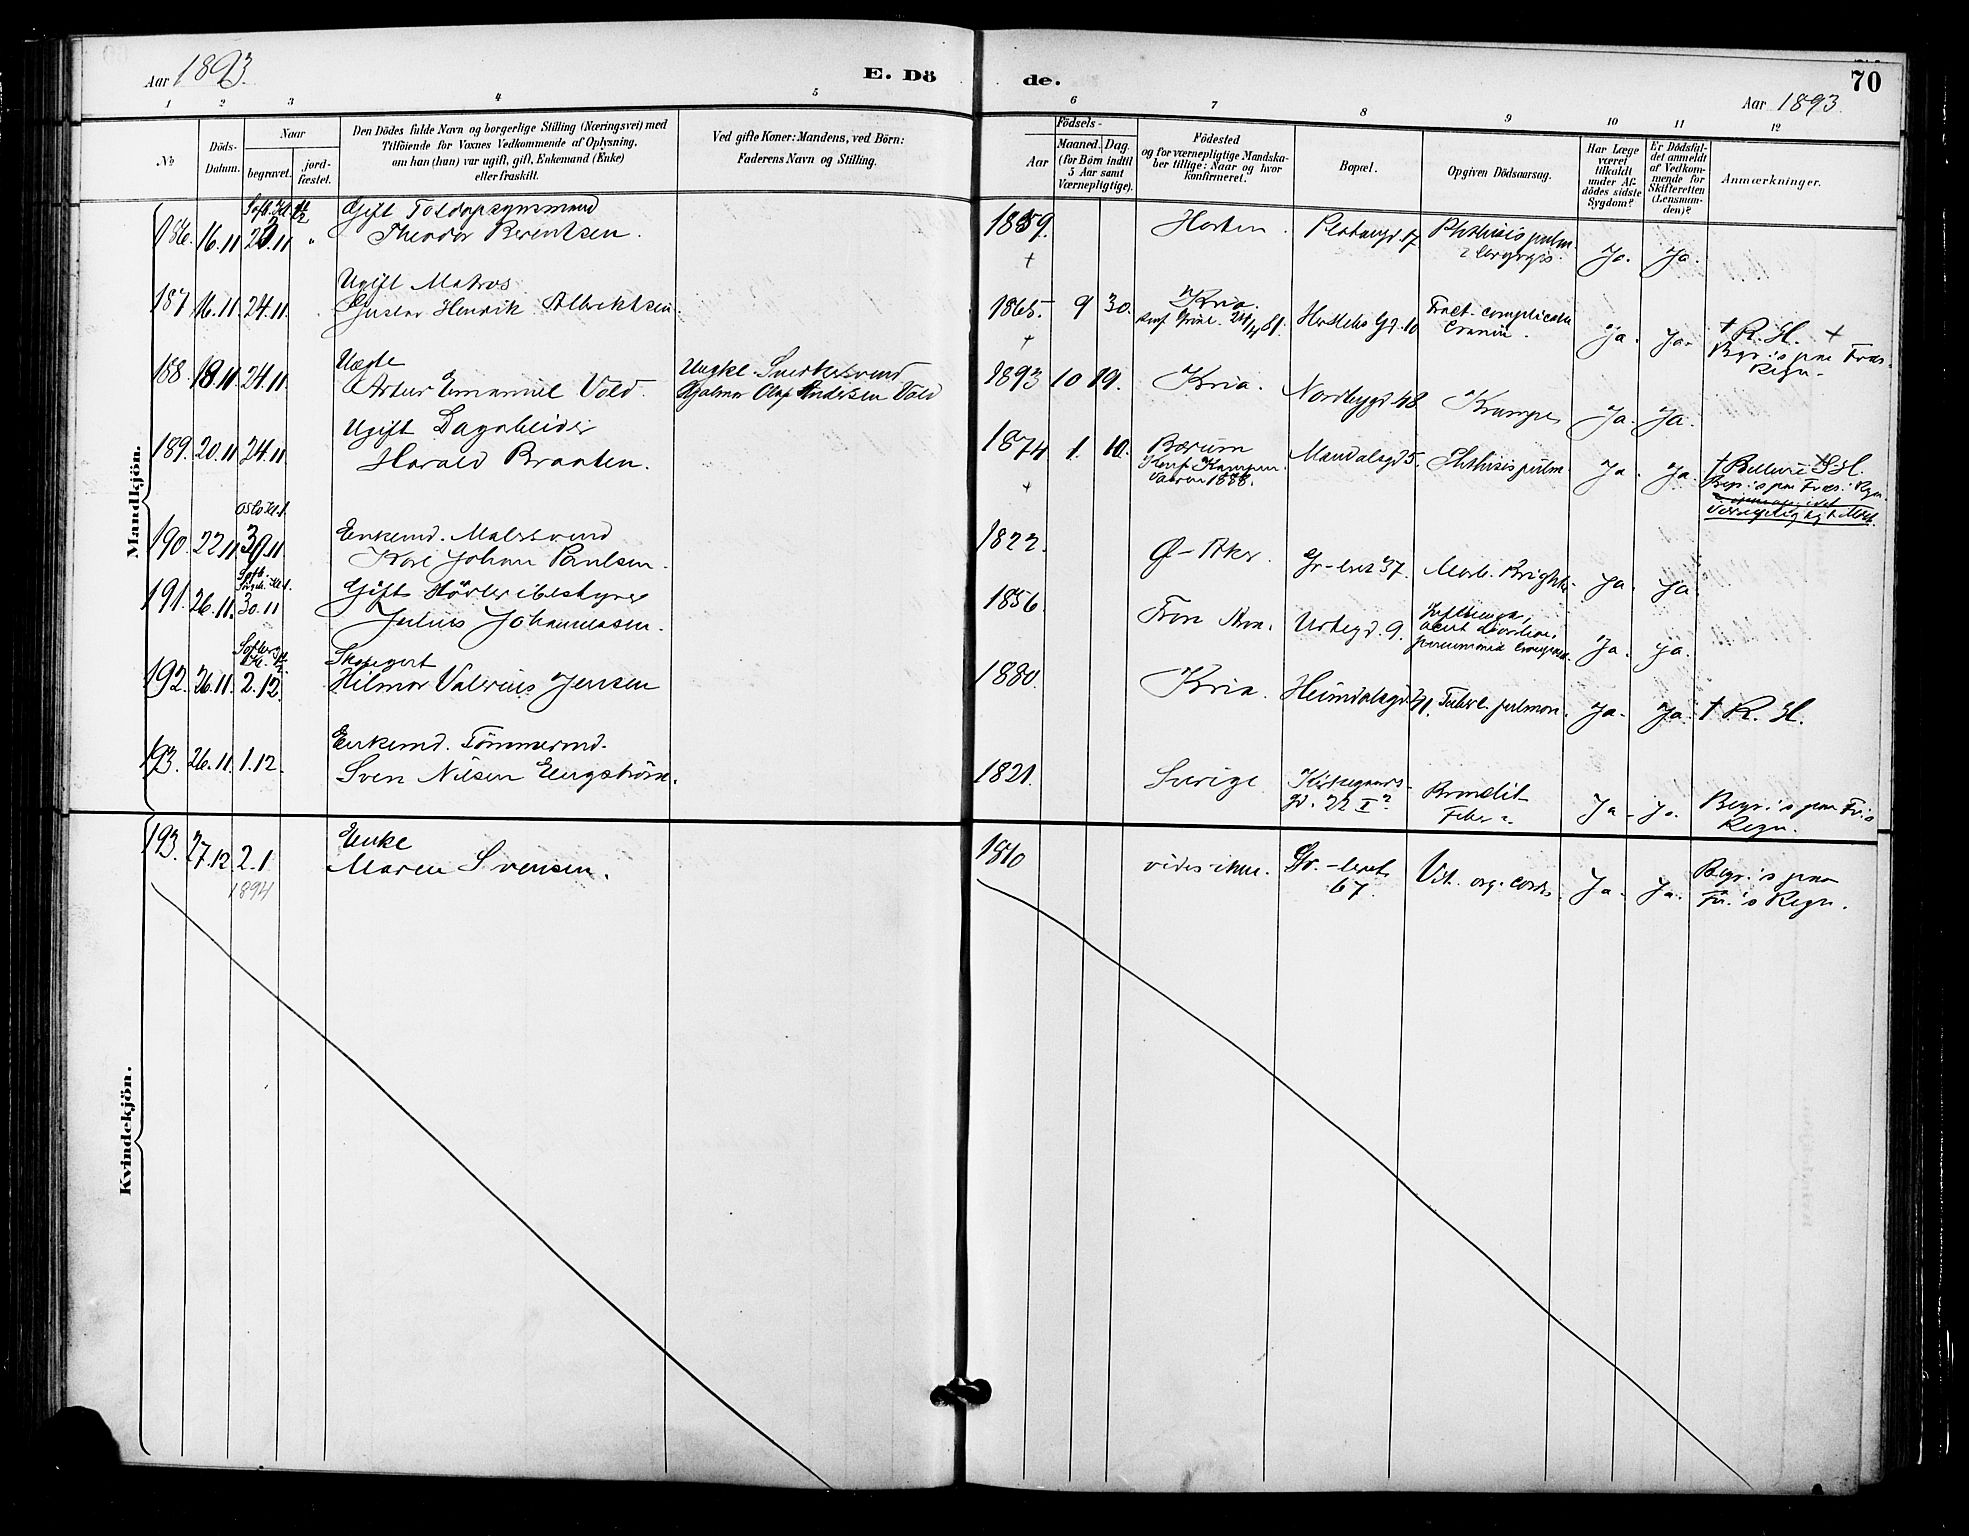 Aar 1893.
E. Dö
de.
70
Aar 1893.
1 2 3 4 5 6 7 8 9 10 11 12
No
Döds-
Datum.
Naar
begravet.
jord-
fæstet.
Den Dödes fulde Navn og borgerlige Stilling (Næringsvei) med
Tilföiende for Voxnes Vedkommende af Oplysning,
om han (hun) var ugift, gift, Enkemand (Enke)
eller fraskilt.
Ved gifte Koner: Mandens, ved Börn:
Faderens Navn og Stilling.
Födsels-
Aar
Maaned.
Dag.
(for Börn indtil
5 Aar samt
Værnepligtige).
Födested
og for værnepligtige Mandska-
ber tillige: Naar og hvor
konfirmeret.
Bopæl.
Opgiven Dödsaarsag.
Har Læge
været
tilkaldt
under Af-
dödes sidste
Sygdom?
Er Dödsfal-
det anmeldt
af Vedkom-
mende for
Skifteretten
(Lensman-
den)?
Anmærkninger.
Mandkjön.
186. 16.11 23.11 "
Gift Toldopsynsmand
Theodor Berentsen.
1859. Horten. Platougd 17 Phthisis pulm
Ja. Ja.
187 16.11. 24.11.
Ugift Matros
Gustav Henrik Albrektsen
1865. 9 30. Kria. Hoslels Gd. 10 Fract. complicata
Cranii. Ja. Ja. † R. H. +
188. 18.11 24.11.
Uægte
Artur Emanuel Vold.
Ungkl. Snedkersvend
Hjalmar Olaf Andersen Vold
1893 10 19. Kria. Nordbygd 48. Krampe Ja. Ja.
189. 20.11 24.11
Ugift Dagarbeider
Harald Braaten.
1874 1. 10. Bærum
Konf. Kampen
1888.
Mandalsgd 5. Phthisis pulm. Ja. Ja.
190. 22.11 30.11
Enkemd. Malersvend
Karl Johan Paulsen.
1822. Ø-Aker. Gr-leret 37. Morb. Brightii Ja. Ja.
191. 26.11. 30.11
Gift
Julius Johannesen.
1856 Urtegd. 9. Influenza,
Ja. Ja.
192. 26.11. 2.12.
Hilmar Valerius Jensen
1880. Kria. Heimdalsgd. 31. Tuberc. pulmon. Ja. Ja. † R. H.
193. 26.11. 1.12.
Enkemd. Tömmermd.
Sven Nilsen Engström.
1821. Sverige Kirkegaards-
gd. 22 I? Ja. Ja. Begr. 's paa Fr.'s
Regn.
Kvindekjön.
193. 27.12 2.1
1894
Enke
Maren Svensen.
1810 vides ikke. Gr.-leret
67. Vit. org. cordis. Ja. Ja. Begr. 's paa
Fr.'s Regn.